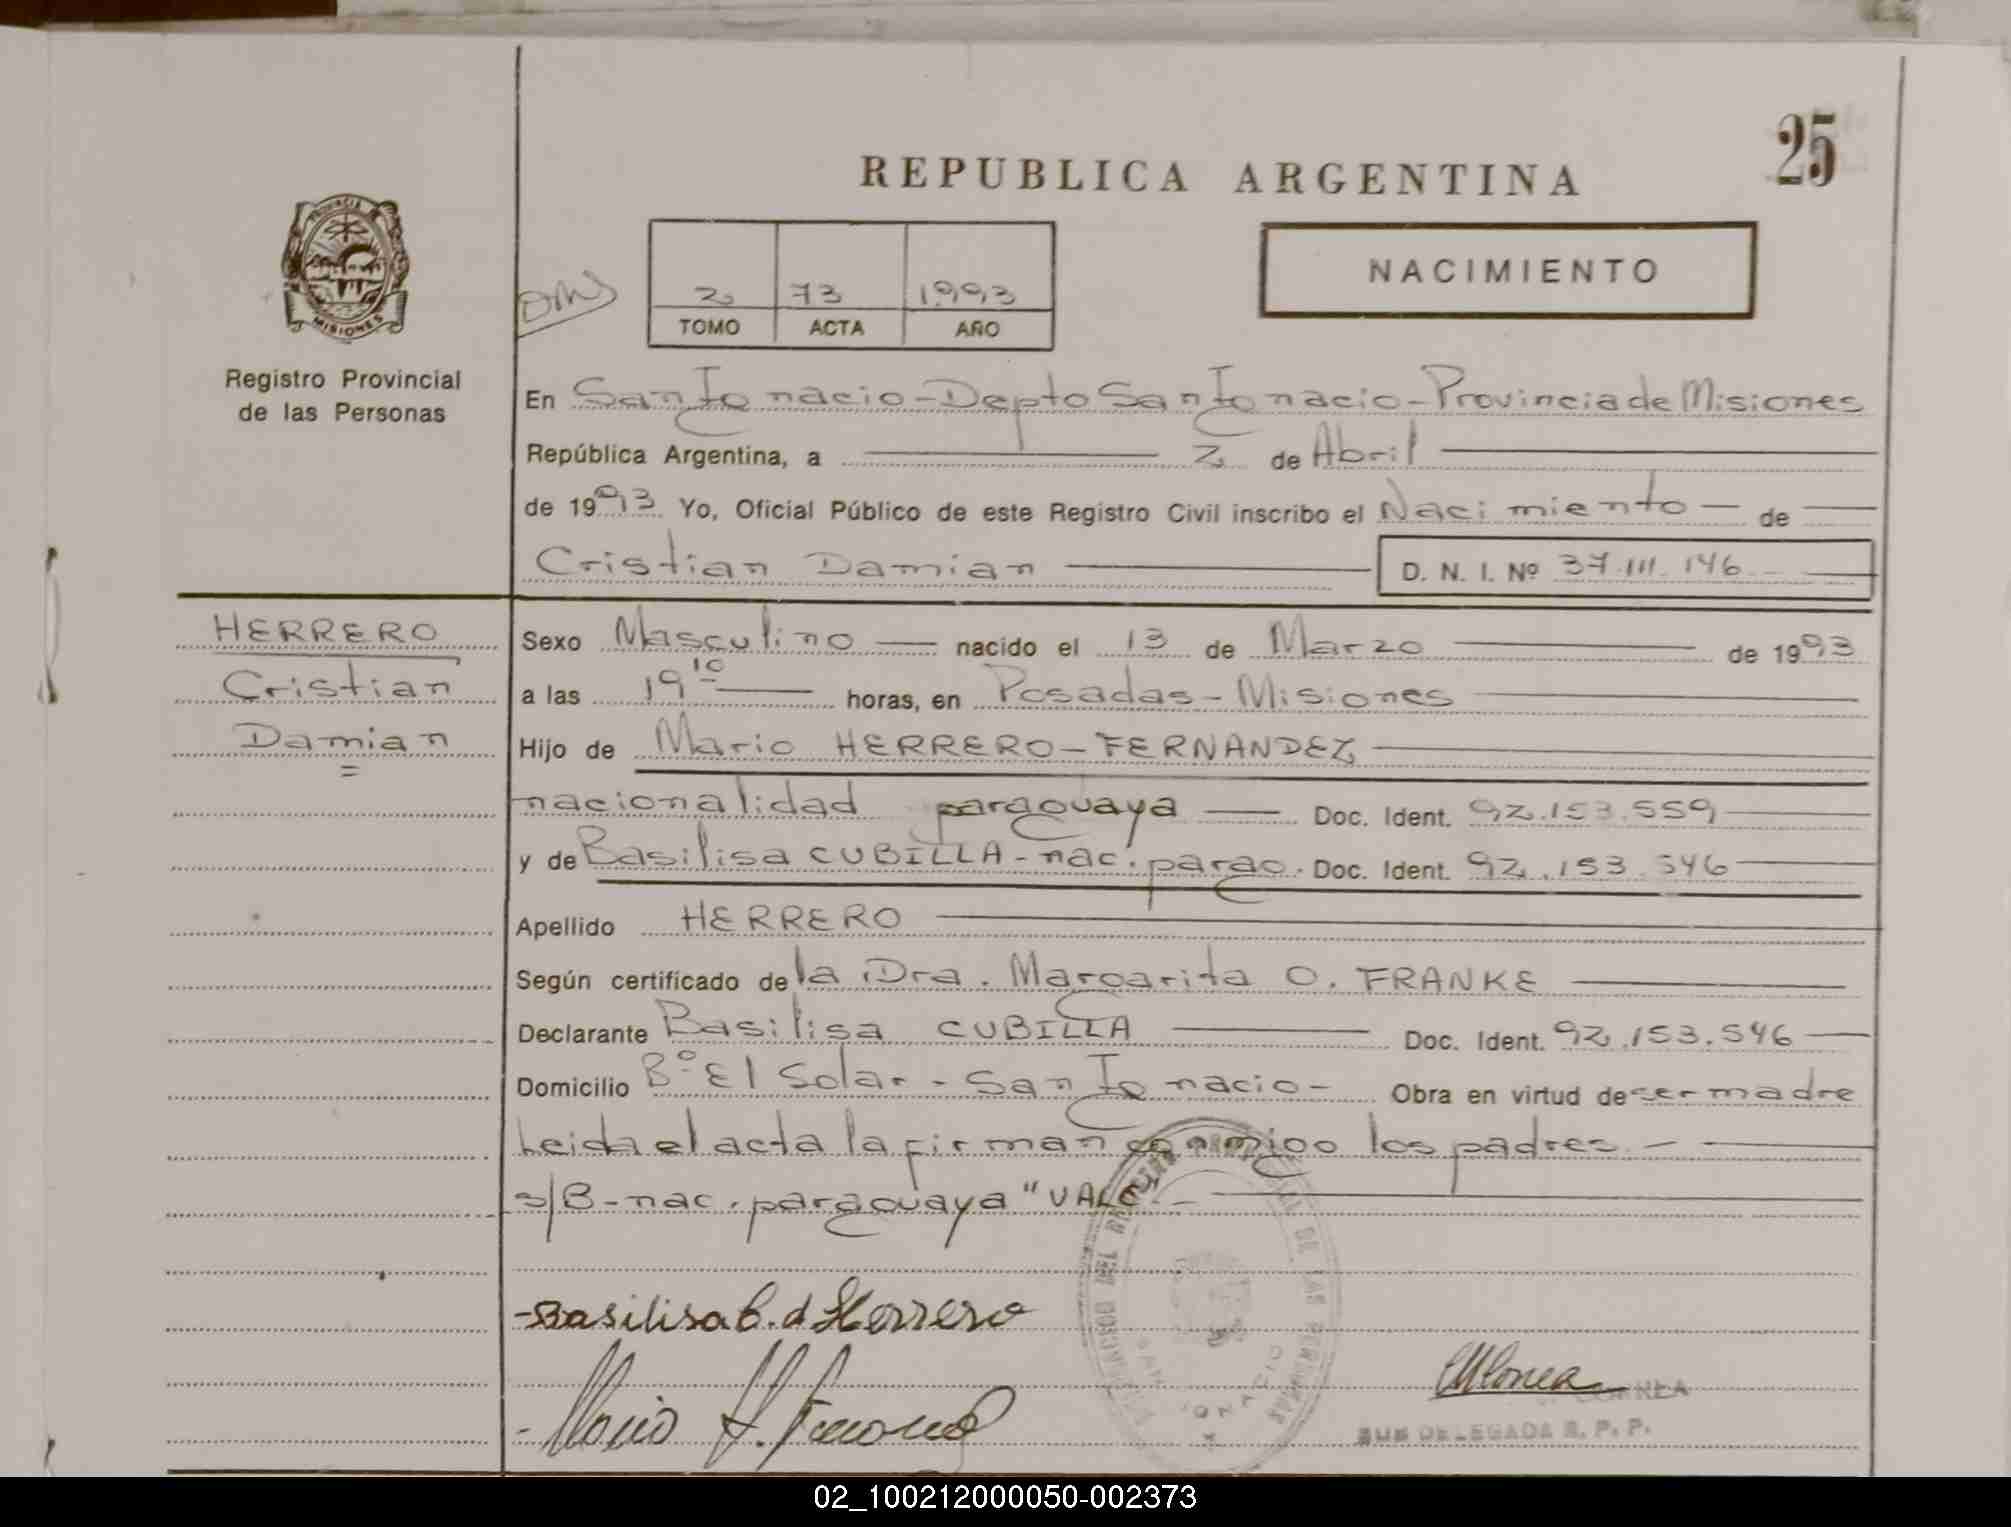 25
REPUBLICA ARGENTINA
PROVINCIA DE
MISIONES
Registro Provincial
de las Personas
NACIMIENTO
2 73 1993
TOMO ACTA AÑO
En San Ignacio - Depto San Ignacio - Provincia de Misiones
República Argentina, a 2 de Abril
de 1993 Yo, Oficial Público de este Registro Civil inscribo el Nacimiento de
Cristian Damian D. N. I. Nº 37.111.146
HERRERO
Cristian
Damian
Sexo Masculino nacido el 13 de Marzo de 1993
a las 19 10 horas, en Posadas - Misiones
Hijo de Mario HERRERO - FERNANDEZ
nacionalidad paraguaya Doc. Ident. 92.153.559
y de Basilisa CUBILLA - nac. parag. Doc. Ident. 92.153.546
Apellido HERRERO
Según certificado de la Dra. Margarita O. FRANKE
Declarante Basilisa CUBILLA Doc. Ident. 92.153.546
Domicilio Bº El Solar - San Ignacio - Obra en virtud de ser madre
Leida el acta la firman conmigo los padres. -
s/B - nac. paraguaya "VALE
Basilisa C. d Herrero
Mario H.
SUB DELEGADA R. P. P.
02_100212000050-002373